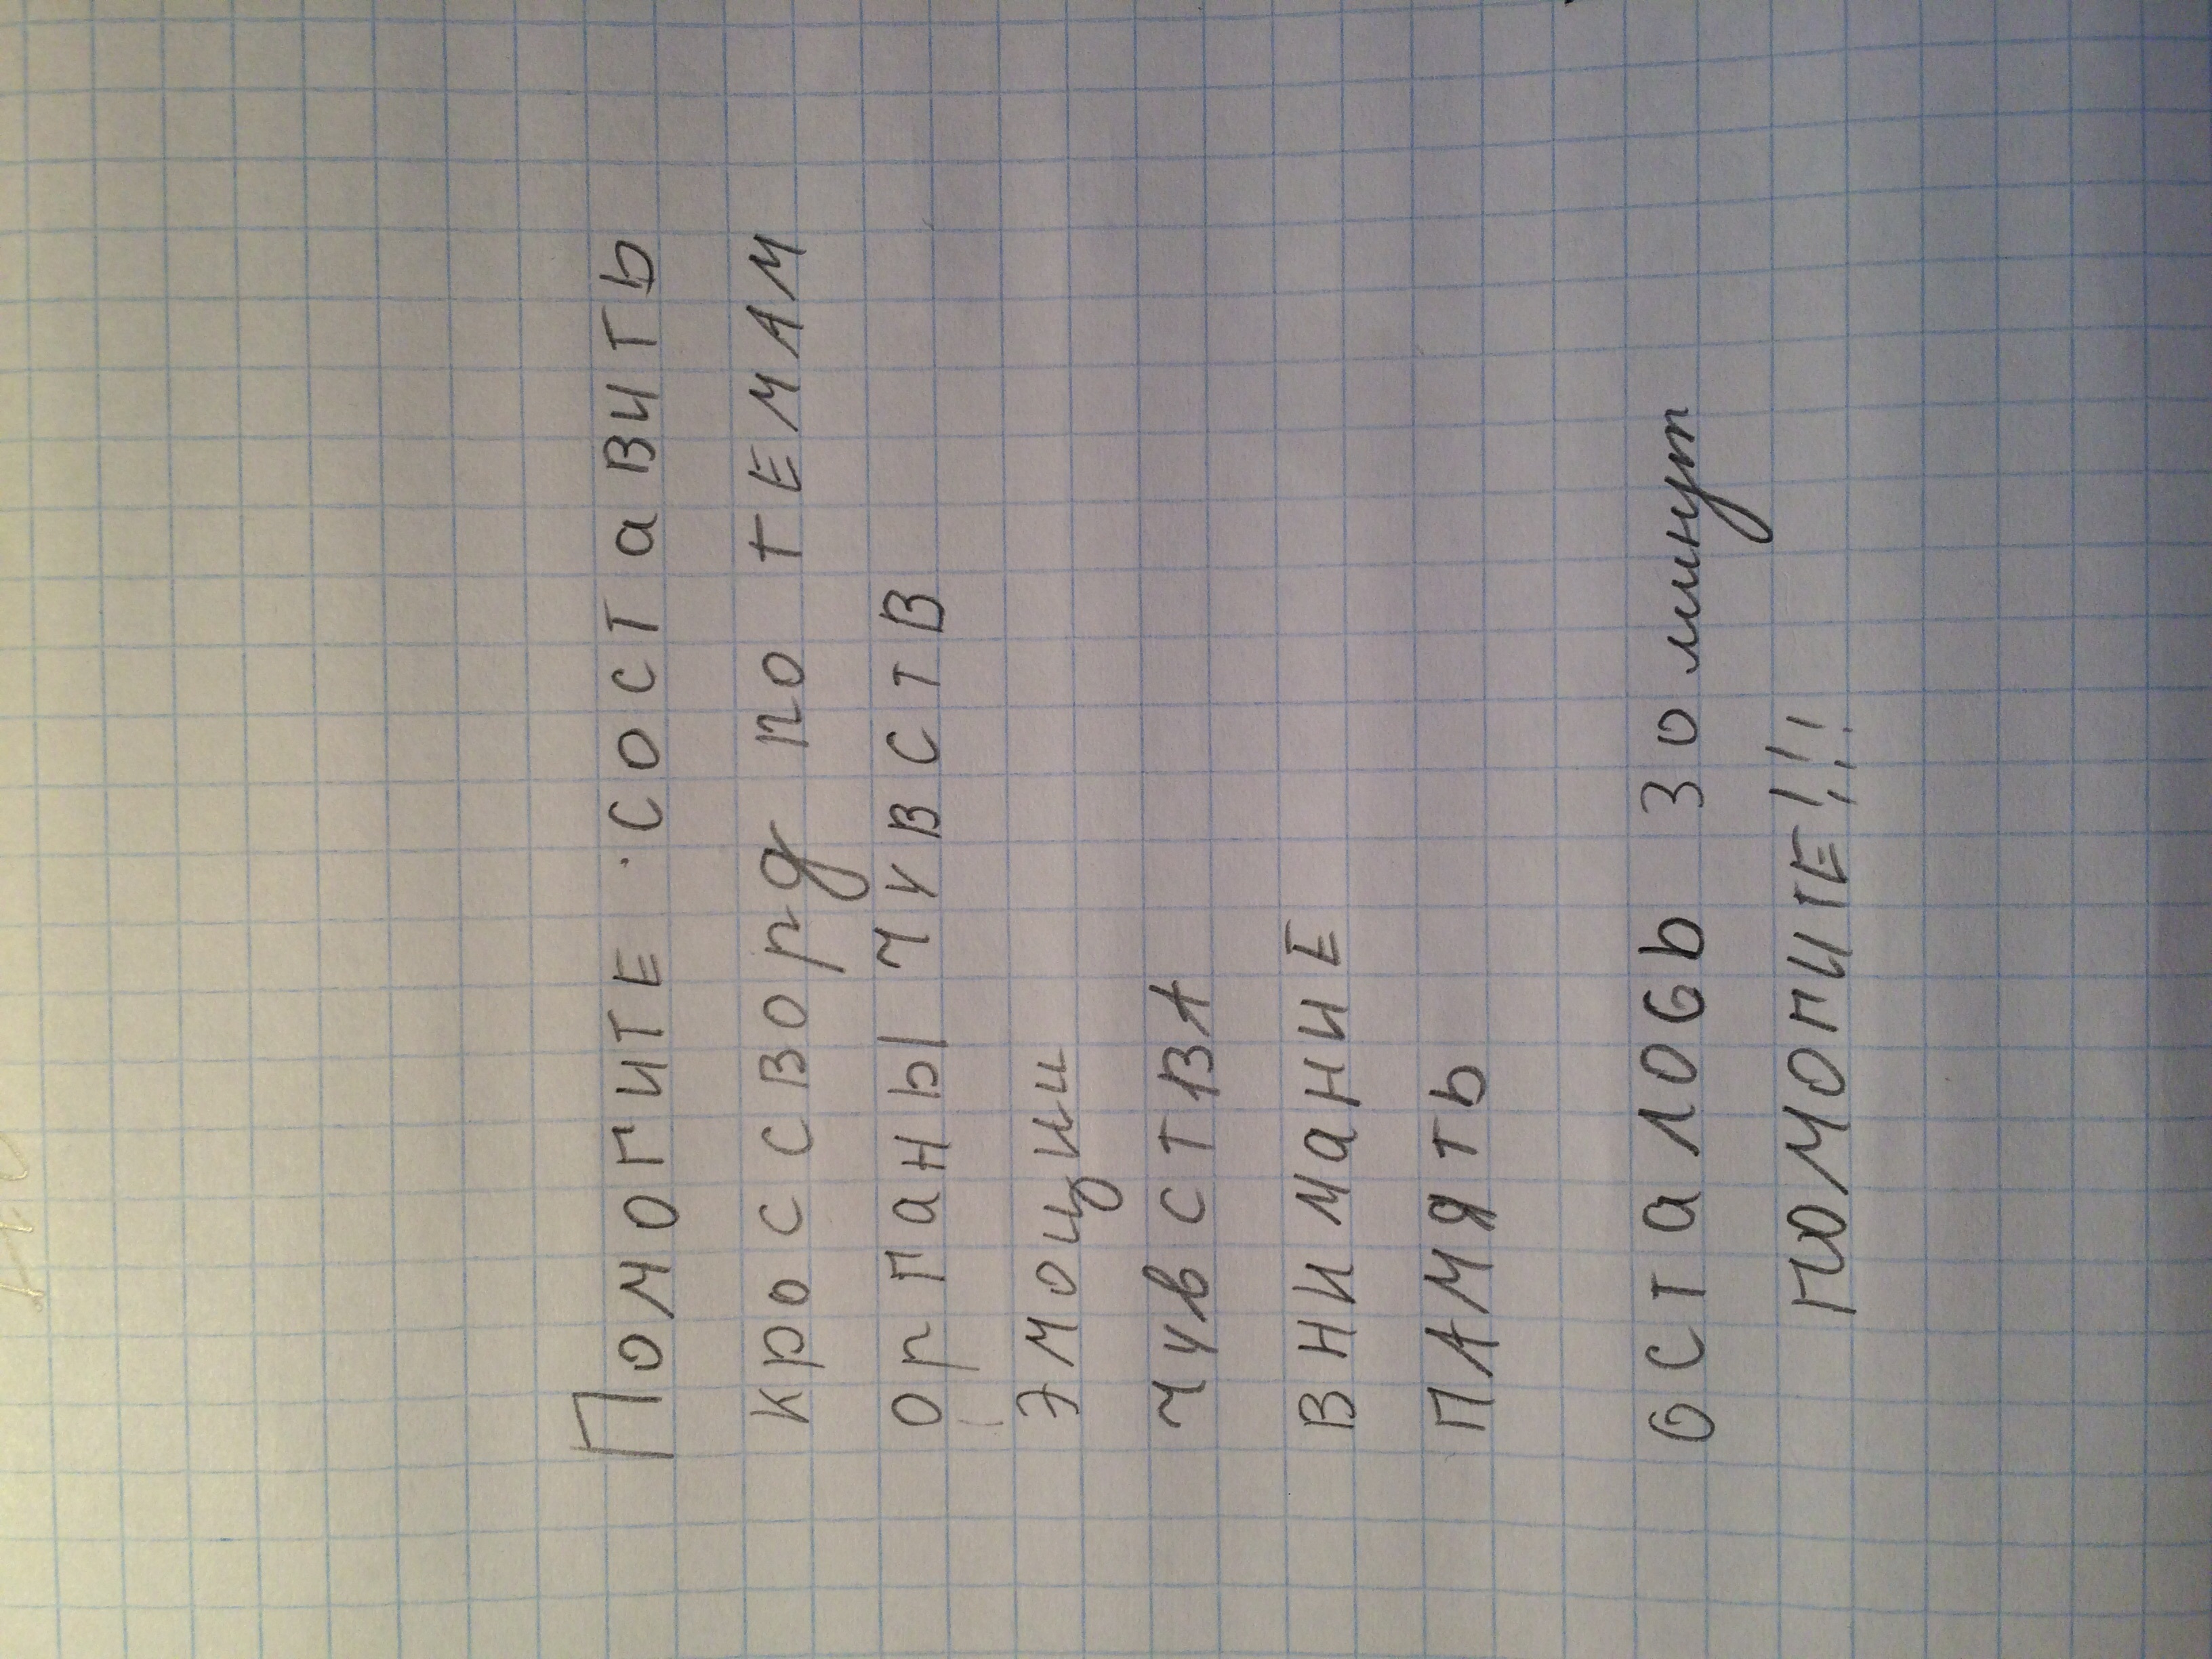 Помогите составить
кроссворд по темам
органы чувств
эмоции
чувства
внимание
память
осталось 30 минут
помогите!!!